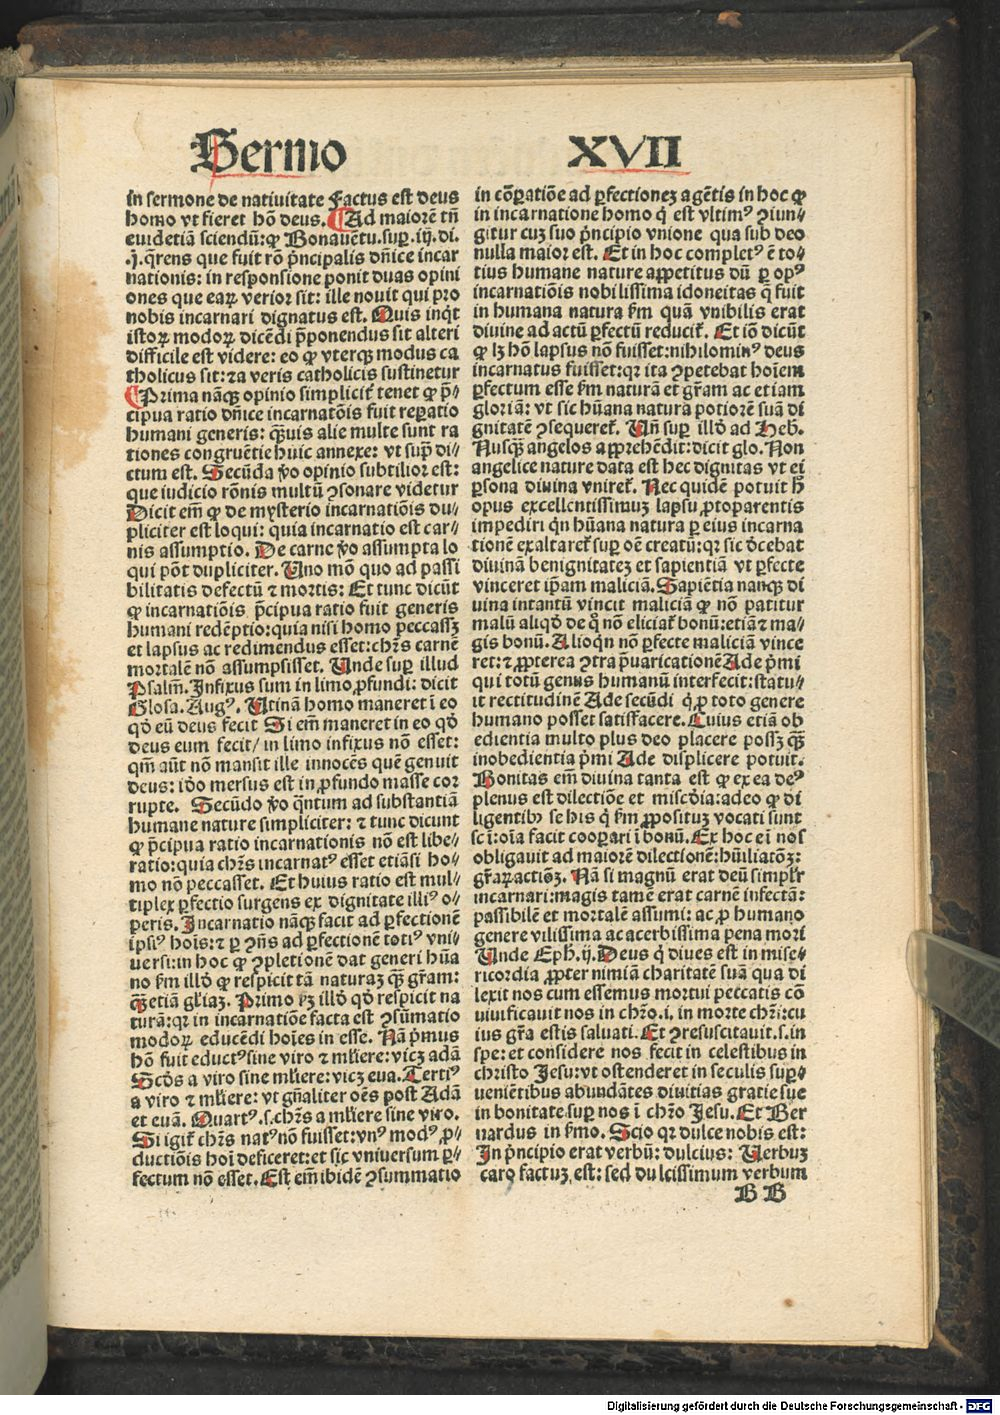 Sermo XVII
in sermone de natiuitate Factus est deus
homo vt fieret hõ deus. Ad maiorẽ tñ
euidetiã sciendũ: ꝙ Bonauẽtu. suꝑ .iij. di.
.j. q̃rens que fuit rõ p̃ncipalis dñice incar
nationis: in responsione ponit duas opini
ones que eaꝝ verior sit: ille nouit qui pro
nobis incarnari dignatus est. Quis inq̇t
istoꝝ modoꝝ dicẽdi p̃ponendus sit alteri
difficile est videre: eo ꝙ vterqꝫ modus ca
tholicus sit: ⁊ a veris catholicis sustinetur
Prima nãqꝫ opinio simplicit̃ tenet ꝙ p̃⸗
cipua ratio dñice incarnatõis fuit reꝑatio
humani generis: q̃uis alie multe sunt ra
tiones congruẽtie huic annexe: vt sup̃ di⸗
ctum est. Secũda v̊o opinio subtilior est:
que iudicio rõnis multũ ꝯsonare videtur
Dicit em̃ ꝙ de mysterio incarnatiõis du⸗
pliciter est loqui: quia incarnatio est car⸗
nis assumptio. De carne v̊o assumpta lo
qui põt dupliciter. Uno mõ quo ad passi
bilitatis defectũ ⁊ mortis: Et tunc dicũt
ꝙ incarnatiõis p̃cipua ratio fuit generis
humani redẽptio: quia nisi homo peccassꝫ
et lapsus ac redimendus esset: chr̃s carnẽ
mortalẽ nõ assumpsisset. Unde suꝑ illud
Psalm̃. Infixus sum in limo ꝓfundi: dicit
Glosa. Augꝰ. Utinã homo maneret ĩ eo
qd̊ eũ deus fecit Si em̃ maneret in eo qd̊
deus eum fecit/ in limo infixus nõ esset:
qm̃ aũt nõ mansit ille innocẽs quẽ genuit
deus: iđo mersus est in ꝓfundo masse cor
rupte. Secũdo v̊o q̃ntum ad substantiã
humane nature simpliciter: ⁊ tunc dicunt
ꝙ p̃cipua ratio incarnationis nõ est libe⸗
ratio: quia chr̃s incarnatꝰ esset etiãsi ho⸗
mo nõ peccasset. Et huius ratio est mul⸗
tiplex ꝑfectio surgens ex dignitate illiꝰ o⸗
peris. Incarnatio nãqꝫ facit ad ꝑfectionẽ
ipsiꝰ hoĩs: ⁊ ꝑ ꝯñs ad ꝑfectionẽ totiꝰ vni⸗
uersi: in hoc ꝙ ꝯpletionẽ dat generi hũa
no ẜm illđ ꝙ respicit tã naturaꝫ qꝫ̃ gr̃am:
qꝫ̃ etiã gl̃iaꝫ. Primo ẜꝫ illđ qd̊ respicit na
turã: qꝛ in incarnatiõe facta est ꝯsũmatio
modoꝝ educẽdi hoĩes in esse. Nã p̃mus
hõ fuit eductꝰ sine viro ⁊ mĺiere: vicꝫ adã
Scđs a viro sine mĺiere: vicꝫ eua. Tertiꝰ
a viro ⁊ mĺiere: vt gñaliter oẽs post Adã
et euã. Quartꝰ .s. chr̃s a mĺiere sine viro.
Si igit̃ chr̃s natꝰ nõ fuisset: vnꝰ modꝰ ꝓ⸗
ductiõis hoĩ deficeret: et sic vniuersum ꝑ⸗
fectum nõ esset. Est em̃ ibidẽ ꝯsummatio
in cõꝑatiõe ad ꝑfectioneꝫ agẽtis in hoc ꝙ
in incarnatione homo q̇ est vltimꝰ ꝯiun⸗
gitur cuꝫ suo p̃ncipio vnione qua sub deo
nulla maior est. Et in hoc completꝰ ẽ to⸗
tius humane nature appetitus dũ ꝑ opꝰ
incarnatiõis nobilissima idoneitas q̃ fuit
in humana natura ẜm quã vnibilis erat
diuine ad actũ ꝑfectũ reducit̃. Et iõ dicũt
ꝙ lꝫ hõ lapsus nõ fuisset: nihilominꝰ deus
incarnatus fuisset: qꝛ ita ꝯpetebat hoĩem
ꝑfectum esse ẜm naturã et gr̃am ac etiam
gloriã: vt sic hũana natura potiorẽ suã di
gnitatẽ ꝯsequeret̃. Uñ suꝑ illđ ad Heb̃.
Nusqꝫ̃ angelos apprehẽdit: dicit glo. Non
angelice nature data est hec dignitas vt ei
ꝑsona diuina vniret̃. Nec quidẽ potuit h̊
opus excellẽtissimuꝫ lapsu ꝓtoparentis
impediri q̇n hũana natura ꝑ eius incarna
tionẽ exaltaret̃ suꝑ oẽ creatũ: qꝛ sic đcebat
diuinã benignitateꝫ et sapientiã vt ꝑfecte
vinceret ip̃am maliciã. Sapiẽtia nanqꝫ di
uina intantũ vincit maliciã ꝙ nõ patitur
malũ aliqđ de q̊ nõ eliciat̃ bonũ: etiã ⁊ ma⸗
gis bonũ. Alioq̇n nõ ꝑfecte maliciã vince
ret: ⁊ ꝓpterea ꝯtra p̃uaricationẽ Ade p̃mi
qui totũ genus humanũ interfecit: statu⸗
it rectitudinẽ Ade secũdi q̇ ꝑ toto genere
humano posset satisfacere. Cuius etiã ob
edientia multo plus deo placere possꝫ qꝫ̃
inobedientia p̃mi Ade displicere potuit.
Bonitas em̃ diuina tanta est ꝙ ex ea deꝰ
plenus est dilectiõe et misc̊dia: adeo ꝙ di
ligentibꝫ se his q̇ ẜm ꝓpositũ vocati sunt
sc̃i: oĩa facit cooꝑari ĩ bonũ. Ex hoc eĩ nos
obligauit ad maiorẽ dilectionẽ: hũiliatõꝫ:
gr̃aꝝ actiõꝫ. Nã si magnũ erat deũ simpĺr
incarnari: magis tamẽ erat carnẽ infectã:
passibilẽ et mortalẽ assumi: ac ꝓ humano
genere vilissima ac acerbissima pena mori
Unde Eph̃. ij. Deus q̇ diues est in mise⸗
ricordia ꝓpter nimiã charitatẽ suã qua di
lexit nos cum essemus mortui peccatis cõ
uiuificauit nos in chr̃o .i. in morte chr̃i: cu
ius gr̃a estis saluati. Et ꝯresuscitauit .s. in
spe: et considere nos fecit in celestibus in
christo Jesu: vt ostenderet in seculis suꝑ⸗
ueniẽtibus abundãtes diuitias gratie sue
in bonitate suꝑ nos ĩ chr̃o Jesu. Et Ber
nardus in ẜmo. Scio qꝛ dulce nobis est:
In p̃ncipio erat verbũ: dulcius: Uerbuꝫ
caro factuꝫ est: sed dulcissimum verbum
BB
Digitalisierung gefördert durch die Deutsche Forschungsgemeinschaft - DFG